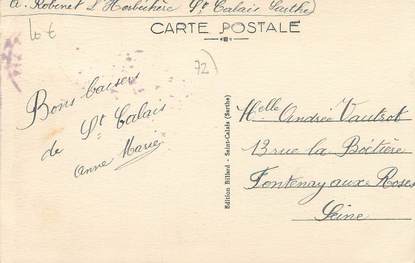 A. Robinet St Calais Sarthe
CARTE POSTALE
10 €
72
Bons baisers
de St Calais
Anne Marie
Edition Bilhed - Saint-Calais (Sarthe)
Melle Andrée Vautrot
13 rue la Boëtière
Fontenay aux Roses
Seine